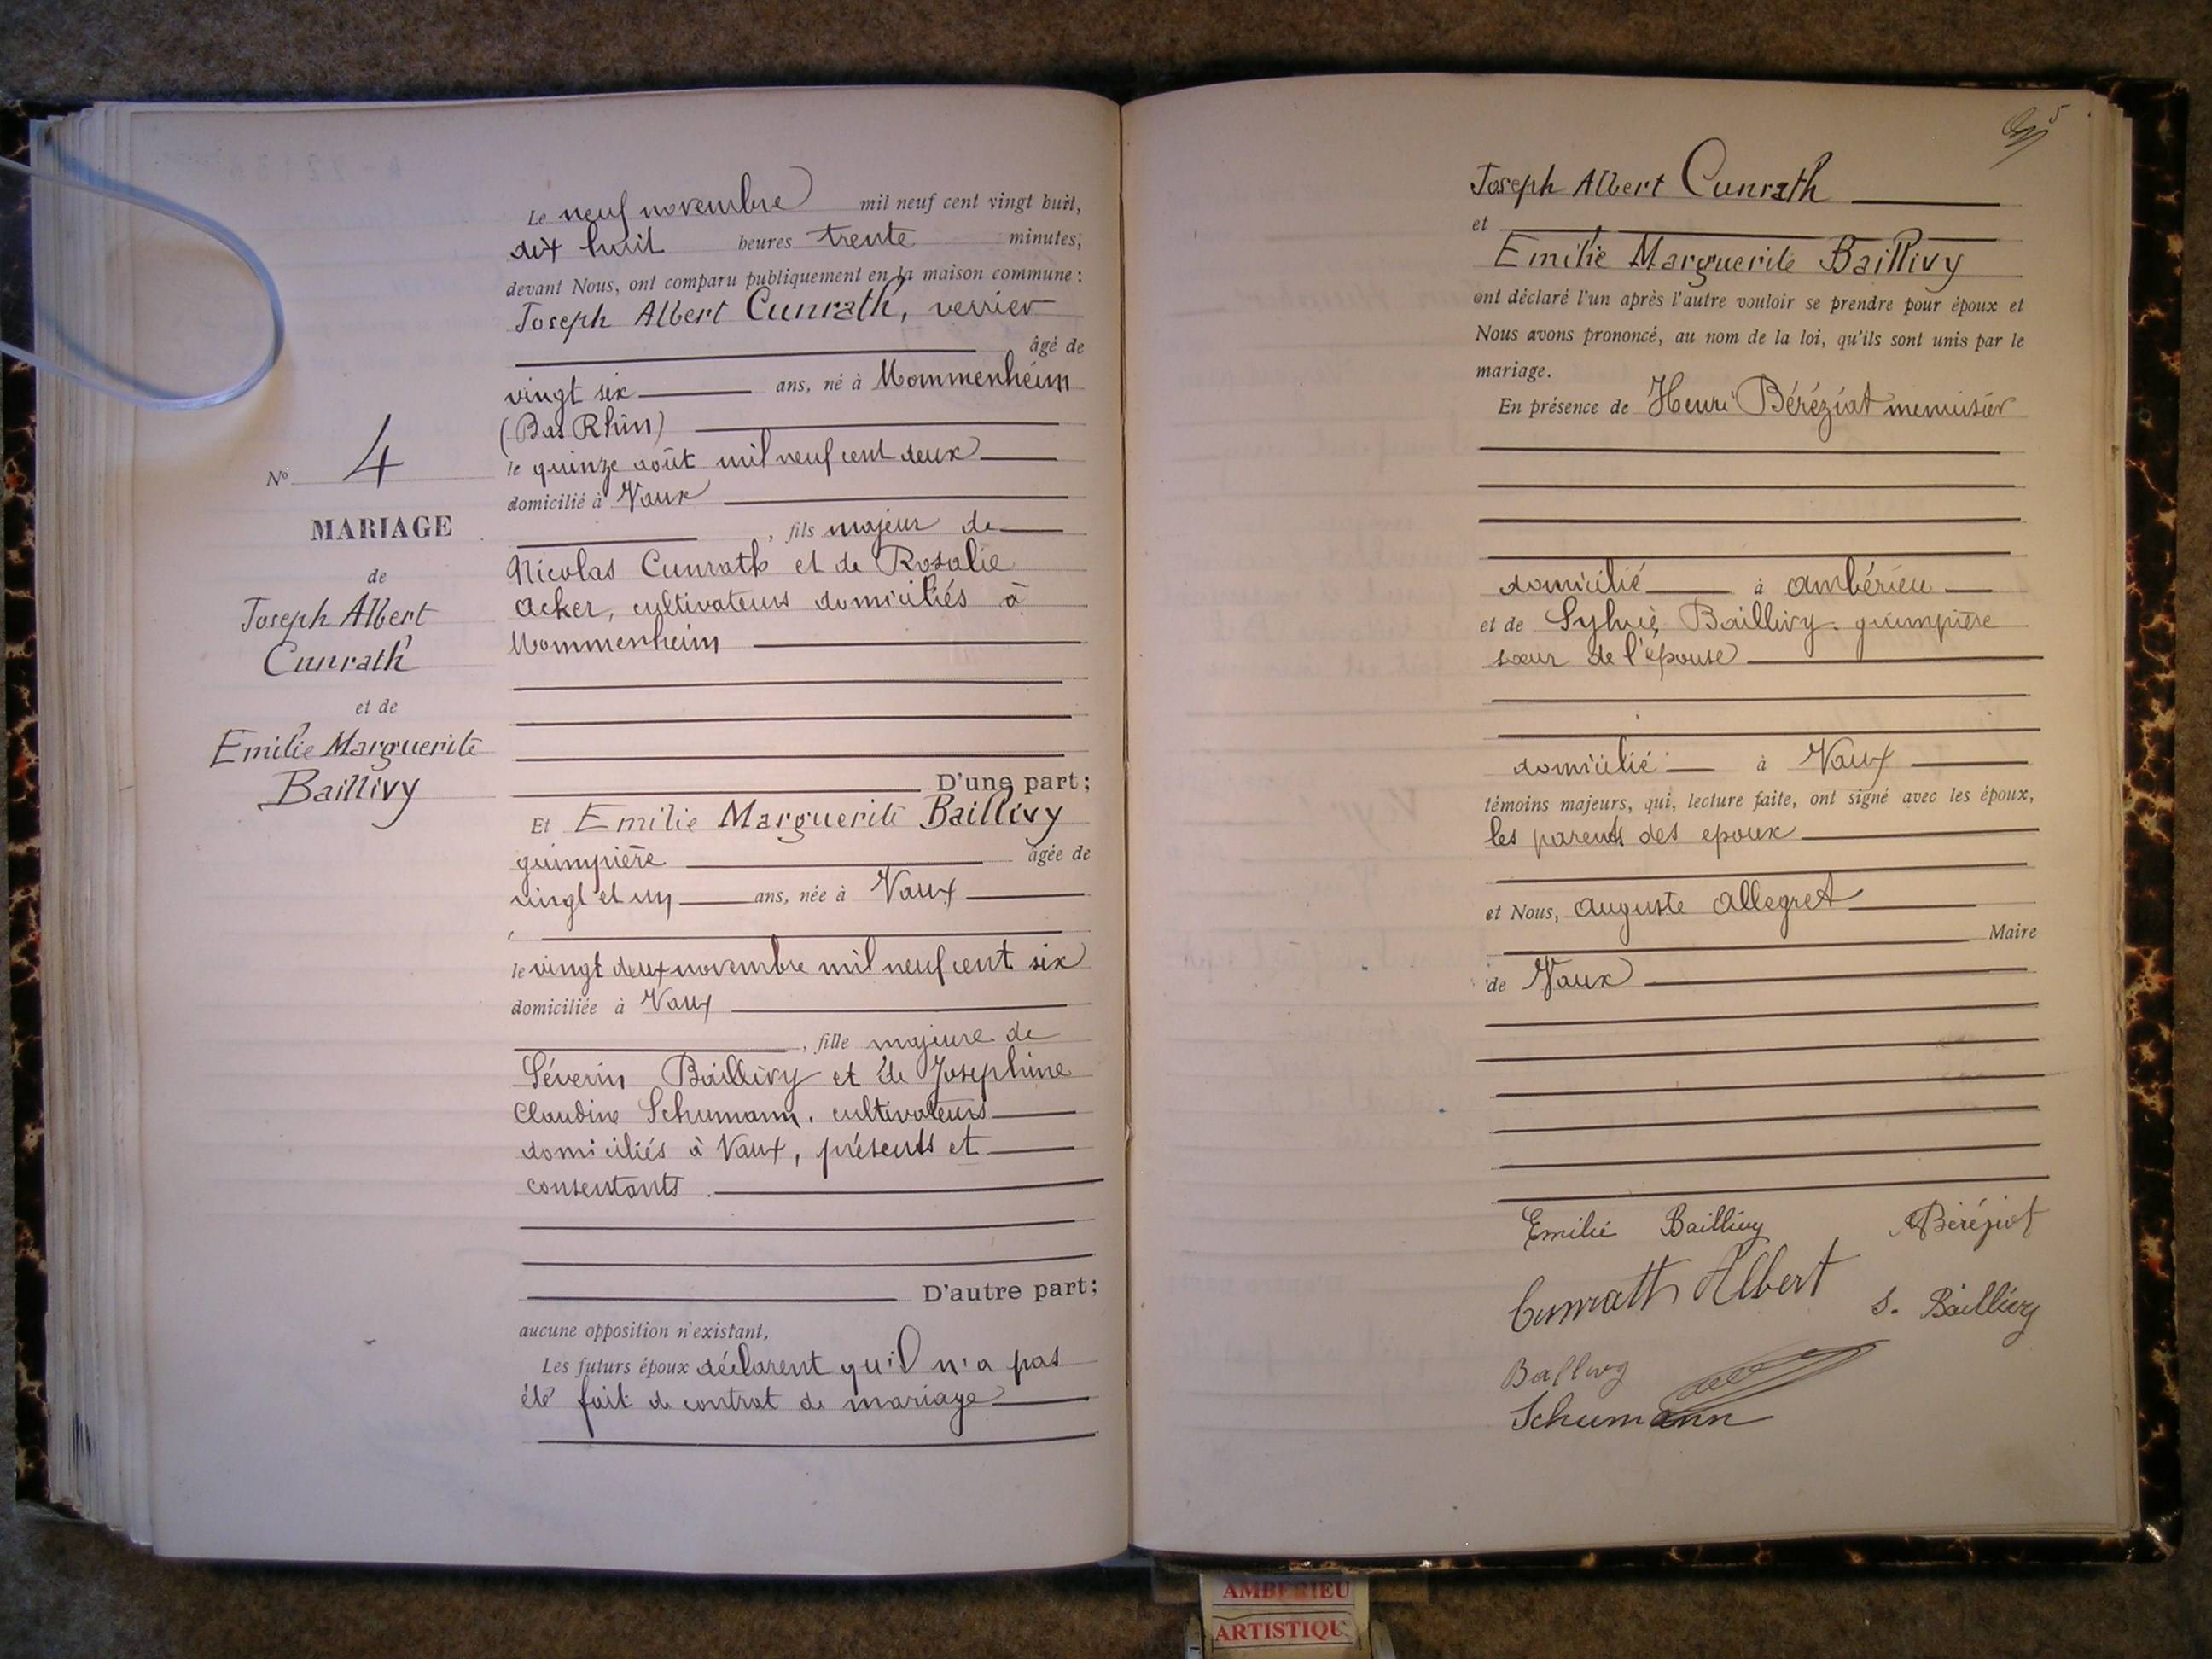 Le neuf novembre mil neuf cent vingt huit,
dix huit heures trente minutes,
devant Nous, ont comparu publiquement en la maison commune :
Joseph Albert Cunrath, verrier
âgé de
vingt six ans, né à Mommenheim
(Bas Rhin)
le quinze août mil neuf cent deux
domicilié à Vaux
, fils majeur de
Nicolas Cunrath et de Rosalie
Acker, cultivateurs domiciliés à
Mommenheim
D'une part ;
Et Emilie Marguerite Baillivy
guimpière âgée de
vingt et un ans, née à Vaux
le vingt deux novembre mil neuf cent six
domiciliée à Vaux
, fille majeure de
Séverin Baillivy et de Josephine
Claudine Schumann, cultivateurs
domiciliés à Vaux, présents et
consentants.
D'autre part ;
aucune opposition n'existant,
Les futurs époux déclarent qu'il n'a pas
été fait de contrat de mariage
No 4
MARIAGE
de
Joseph Albert
Cunrath
et de
Emilie Marguerite
Baillivy
Joseph Albert Cunrath
et
Emilie Marguerite Baillivy
ont déclaré l'un après l'autre vouloir se prendre pour époux et
Nous avons prononcé, au nom de la loi, qu'ils sont unis par le
mariage.
En présence de Henri Béréziat menuisier
domicilié à Ambérieu
et de Sylvie Baillivy. guimpière
sœur de l'épouse
domicilié à Vaux
témoins majeurs, qui, lecture faite, ont signé avec les époux,
les parents des epoux
et Nous, Auguste Allegret
Maire
de Vaux
Emilie Baillivy Béréziat
Cunrath Albert S. Baillivy
Ballivy
Schumann
AMBERIEU
ARTISTIQU